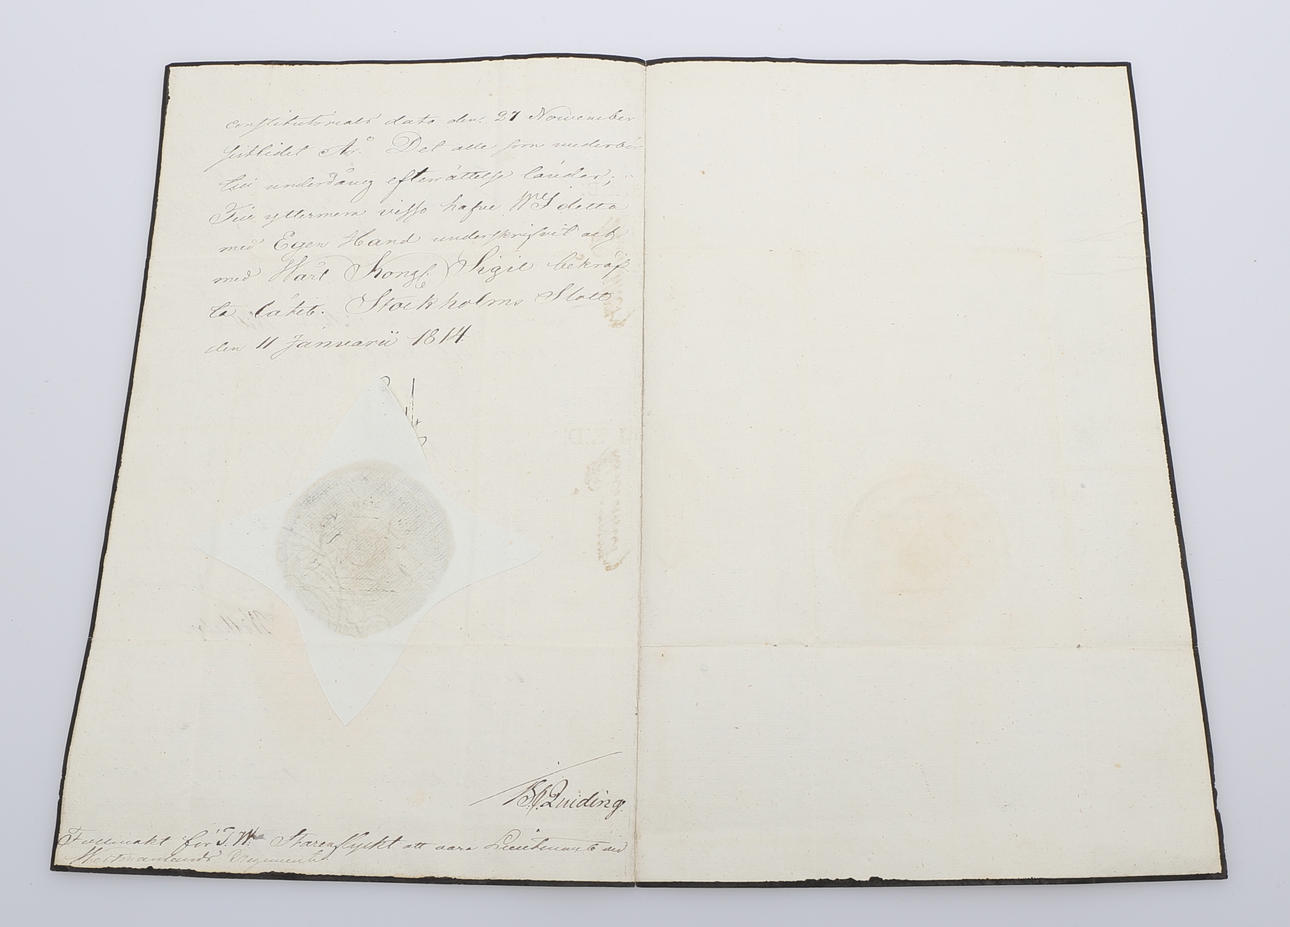 constitutorials dato den 27 November
sistledet År. Det alle som wederbör
till underdånig efterrättelse länder;
Till yttermera visso hafve Wi detta
med Egen Hand underskrifvit och
med Wårt Kongl Sigil bekräf
ta låtit. Stockholms Slott
den 11 Januarii 1814.
Quiding
Fullmakt för J. W. Starenflyckt att vara Lieutenant vid
Westmanlands Regemente